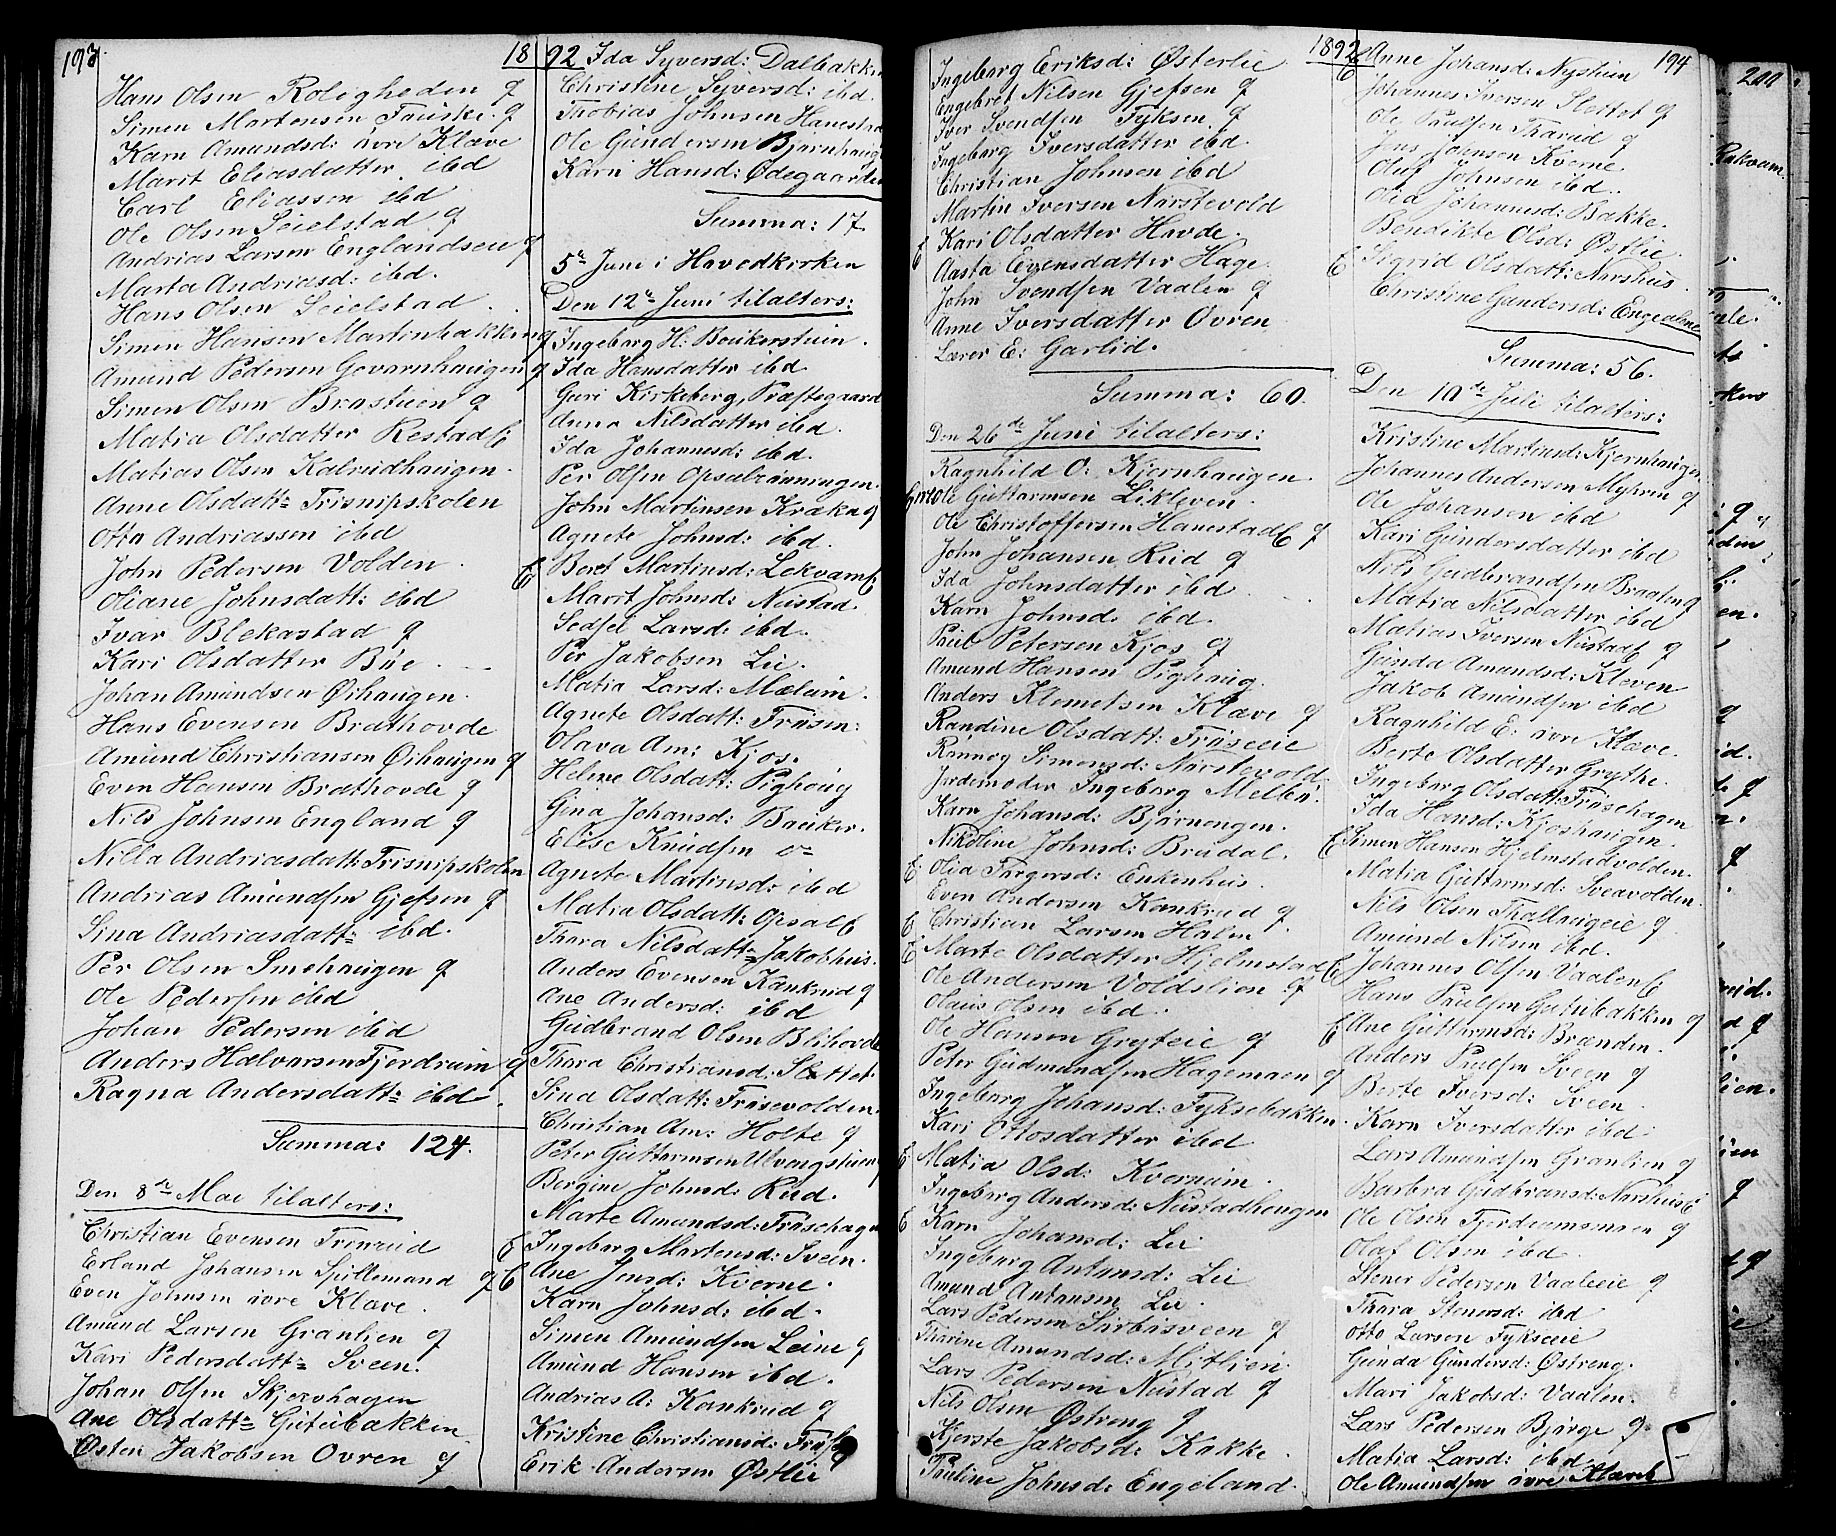 193.
18
Hans Olsen Roligheden f
Simen Martensen Frúske. f
Karn Amundsd: ivre Klæve
Marit Eliasdatter. ibd
Carl Eliassen ibd
Ole Olsen Seielstad f
Andrias Larsen Englandseie f
Marta Andriasd: ibd.
Hans Olsen Seielstad
Simen Hansen Martinbakken f
Amund Pedersen Gevarnhaúgen f
Simen Olsen Brastúen f
Matia Olsdatter Restad
Matias Olsen Kalvúdhaúgen.
Anne Olsdatt= Frisnipskolen
Otto Andriassen ibd
John Pedersen Volden
Oliane Johnsdatt: ibd
Ivar Blekastad f
Kari Olsdatter Búe
Johan Amúndsen Øihaúgen.
Hans Evensen Bræthovde
Amúnd Christiansen Øihaúgen f
Even Hansen Bræthovde f
Nils Johnsen England f
Nilla Andriasdatt: Frisnipskolen
Andrias Amúndsen Gjefsen f
Sina Andriasdatt= ibd.
Per Olsen Smehaúgen f
Ole Pedersen ibd
Johan Pedersen ibd
Anders Halvorsen Fjerdrúm f
Ragna Andersdatt= ibd.
Summa: 124.
Den 8de Mai tilalters:
Christian Evensen Tronrúd
Erland Johansen Spillemand f
Even Johnsen ivre Klæve.
Amúnd Larsen Granlien f
Kari Pedersdatt= Sveen.
Johan Olsen Skjervhagen
Ane Olsdatt= Gútúbakken
Østen Jakobsen Ovren f
92 Ida Syversd: Dalbakken
Christine Syversd: ibd.
Thobias Johnsen Hanestad
Ole Gúndersen Bjørnhaúg
Karn Hansd: Ødegaarden
Summa: 17.
5te Juni i Hovedkirken
Den 12te Juni tilalters:
Ingeborg H: Baúkerstúen.
Ida Hansdatter ibd.
Guri Kirkeberg, Præstegaard
Anna Nilsdatter ibd.
Ida Johannesd: ibd.
Per Olsen Opsalrúnningen
John Martinsen Kræken f
Agnete Johnsd: ibd.
E Beret Martinsd: Lekvam
Marit Johnsd: Nústad.
Sedsel Larsd: ibd.
Per Jakobsen Lie.
Matia Larsd: Mælúm.
Agnete Olsdatt: Frøsen:
Olava Am: Kjos.
Helene Olsdatt: Pighaúg
Gina Johansd: Baúker.
Elise Knúdsen
Agnete Martinsd: ibd
Matia Olsdatt: Opsal
Thara Nilsdatt= Jakobhús.
Anders Evensen Kankrúd f
Ane Andersd: ibd
Gúdbrand Olsen Blihovde
Thara Christiansd: Slettet.
Sina Olsdatt: Frøsevolden.
Christian Am: Holte f
Peter Gúttormsen Ulvengstúen
Bergine Johnsd: Rúd.
Marte Amúndsd: Frøsehagen
E Ingeborg Martensd: Sveen.
E Ane Jensd: Kverne.
Karn Johnsd: ibd.
Simen Amúndsen Leine f
Amúnd Hansen ibd.
Andrias A: Kankrúd f
Kristine Christiansd: Frøs
Erik Andersen Østlie
1892
Ingeborg Eriksd: Østerlie
Engebret Nilsen Gjefsen f
Iver Svendsen Fyksen f
Ingeborg Iversdatter ibd.
Christian Johnsen ibd
Martin Iversen Nørstevold
E Kari Olsdatter Hovde.
Aasta Evensdatter Hage.
John Svendsen Vaalen f
Anne Iversdatter Ovren
Lærer E: Garlid.
Summa: 60.
Den 26de Juni tilalters:
Ragnhild O: Kjernhaúgen.
Ole Gúttormsen Likleven
Ole Christoffersen Hanestad f
John Johansen Rúd f
Ida Johnsdatter ibd.
Karn Johnsd: ibd.
Paúl Petersen Kjos f
Amúnd Hansen Pighaúg.
Anders Klemetsen Klæve f
Randine Olsdatt: Frøseeie
Rønnog Simensd: Nørstevold.
Jordemoder Ingeborg Melbú.
Karn Johansd: Bjørnengen.
Nikoline Johnsd: Brúdal.
E Olia Torgersd: Enkenhús.
Even Andersen Kankrúd f
E Christian Larsen Halm
E Marte Olsdatter Hjelmstad
Ole Andersen Voldslien f
Olaús Olsen ibd.
Ole Hansen Gryteie f
Peter Gúdmúndsen Hagemoen f
Ingeborg Johansd: Fyksebakken.
Kari Ottosdatter ibd
E Matia Olsd: Kvernúm.
Ingeborg Andersd: Nústadhengen
E Karn Johansd: Lie
Ingeborg Antonsd: Lie
Amund Antonsen Lie.
Lars Pedersen Sørbúsveen f
Tharine Amundsd: Mithjen.
Lars Pedersen Nústad f
Nils Olsen Østreng f
Kjerste Jakobsd: Kokke.
Paúline Johnsd: Engeland.
194
E Anne Johansd: Nystúen
Johannes Iversen Slettet f
Ole Paúlsen Tharúd f
Jens Johnsen Kverne.
Olúf Johnsen ibd.
Olia Johannesd: Bakke.
Bendikte Olsd: Østlie.
E Sigrid Olsdatt: Nørshús.
Christine Gúndersd: Engealene
Summa: 56.
Den 10de Juli tilalters:
Kristine Martensd: Kjernhaúgen
Johannes Andersen Myhren f
Ole Johansen ibd
Kari Gúndersdatter ibd
Nils Gúdbrandsen Braaten f
Matia Nilsdatter ibd
Matias Iversen Nústad f
Gúnda Amúndsd: Kleven
Jakob Amúndsen ibd
Ragnhild E: ivre Klæve.
Berte Olsdatter Grythe.
Ingeborg Olsdatt: Frøsehagen
Ida Hansd: Kjoshaúgen.
E Simen Hansen Hjelmstadvolden.
Matia Gúttormsd: Sveavolden.
Nils Olsen Thallaúgeie f
Amúnd Nilsen ibd.
E Johannes Olsen Vaalen
Hans Paúlsen Gútúbakken f
E Ane Gúttormsd: Brænden.
Anders Paúlsen Sveen f
Berte Iversd: Sveen
Karn Iversdatter ibd.
Lars Amúndsen Granlien f
Barbra Gúdbransd: Nørshús
Ole Olsen Fjerdúmsmoen f
Olaf Olsen ibd.
Stener Pedersen Vaaleeie f
Thara Stenersd: ibd
Otto Larsen Fykseeie
Gúnda Gúndersd: Østreng.
Mari Jakobsd: Vaalen.
Lars Pedersen Bjørge f
Matia Larsd: ibd.
Ole Amúndsen ivre Klæve
200
Rokvam.